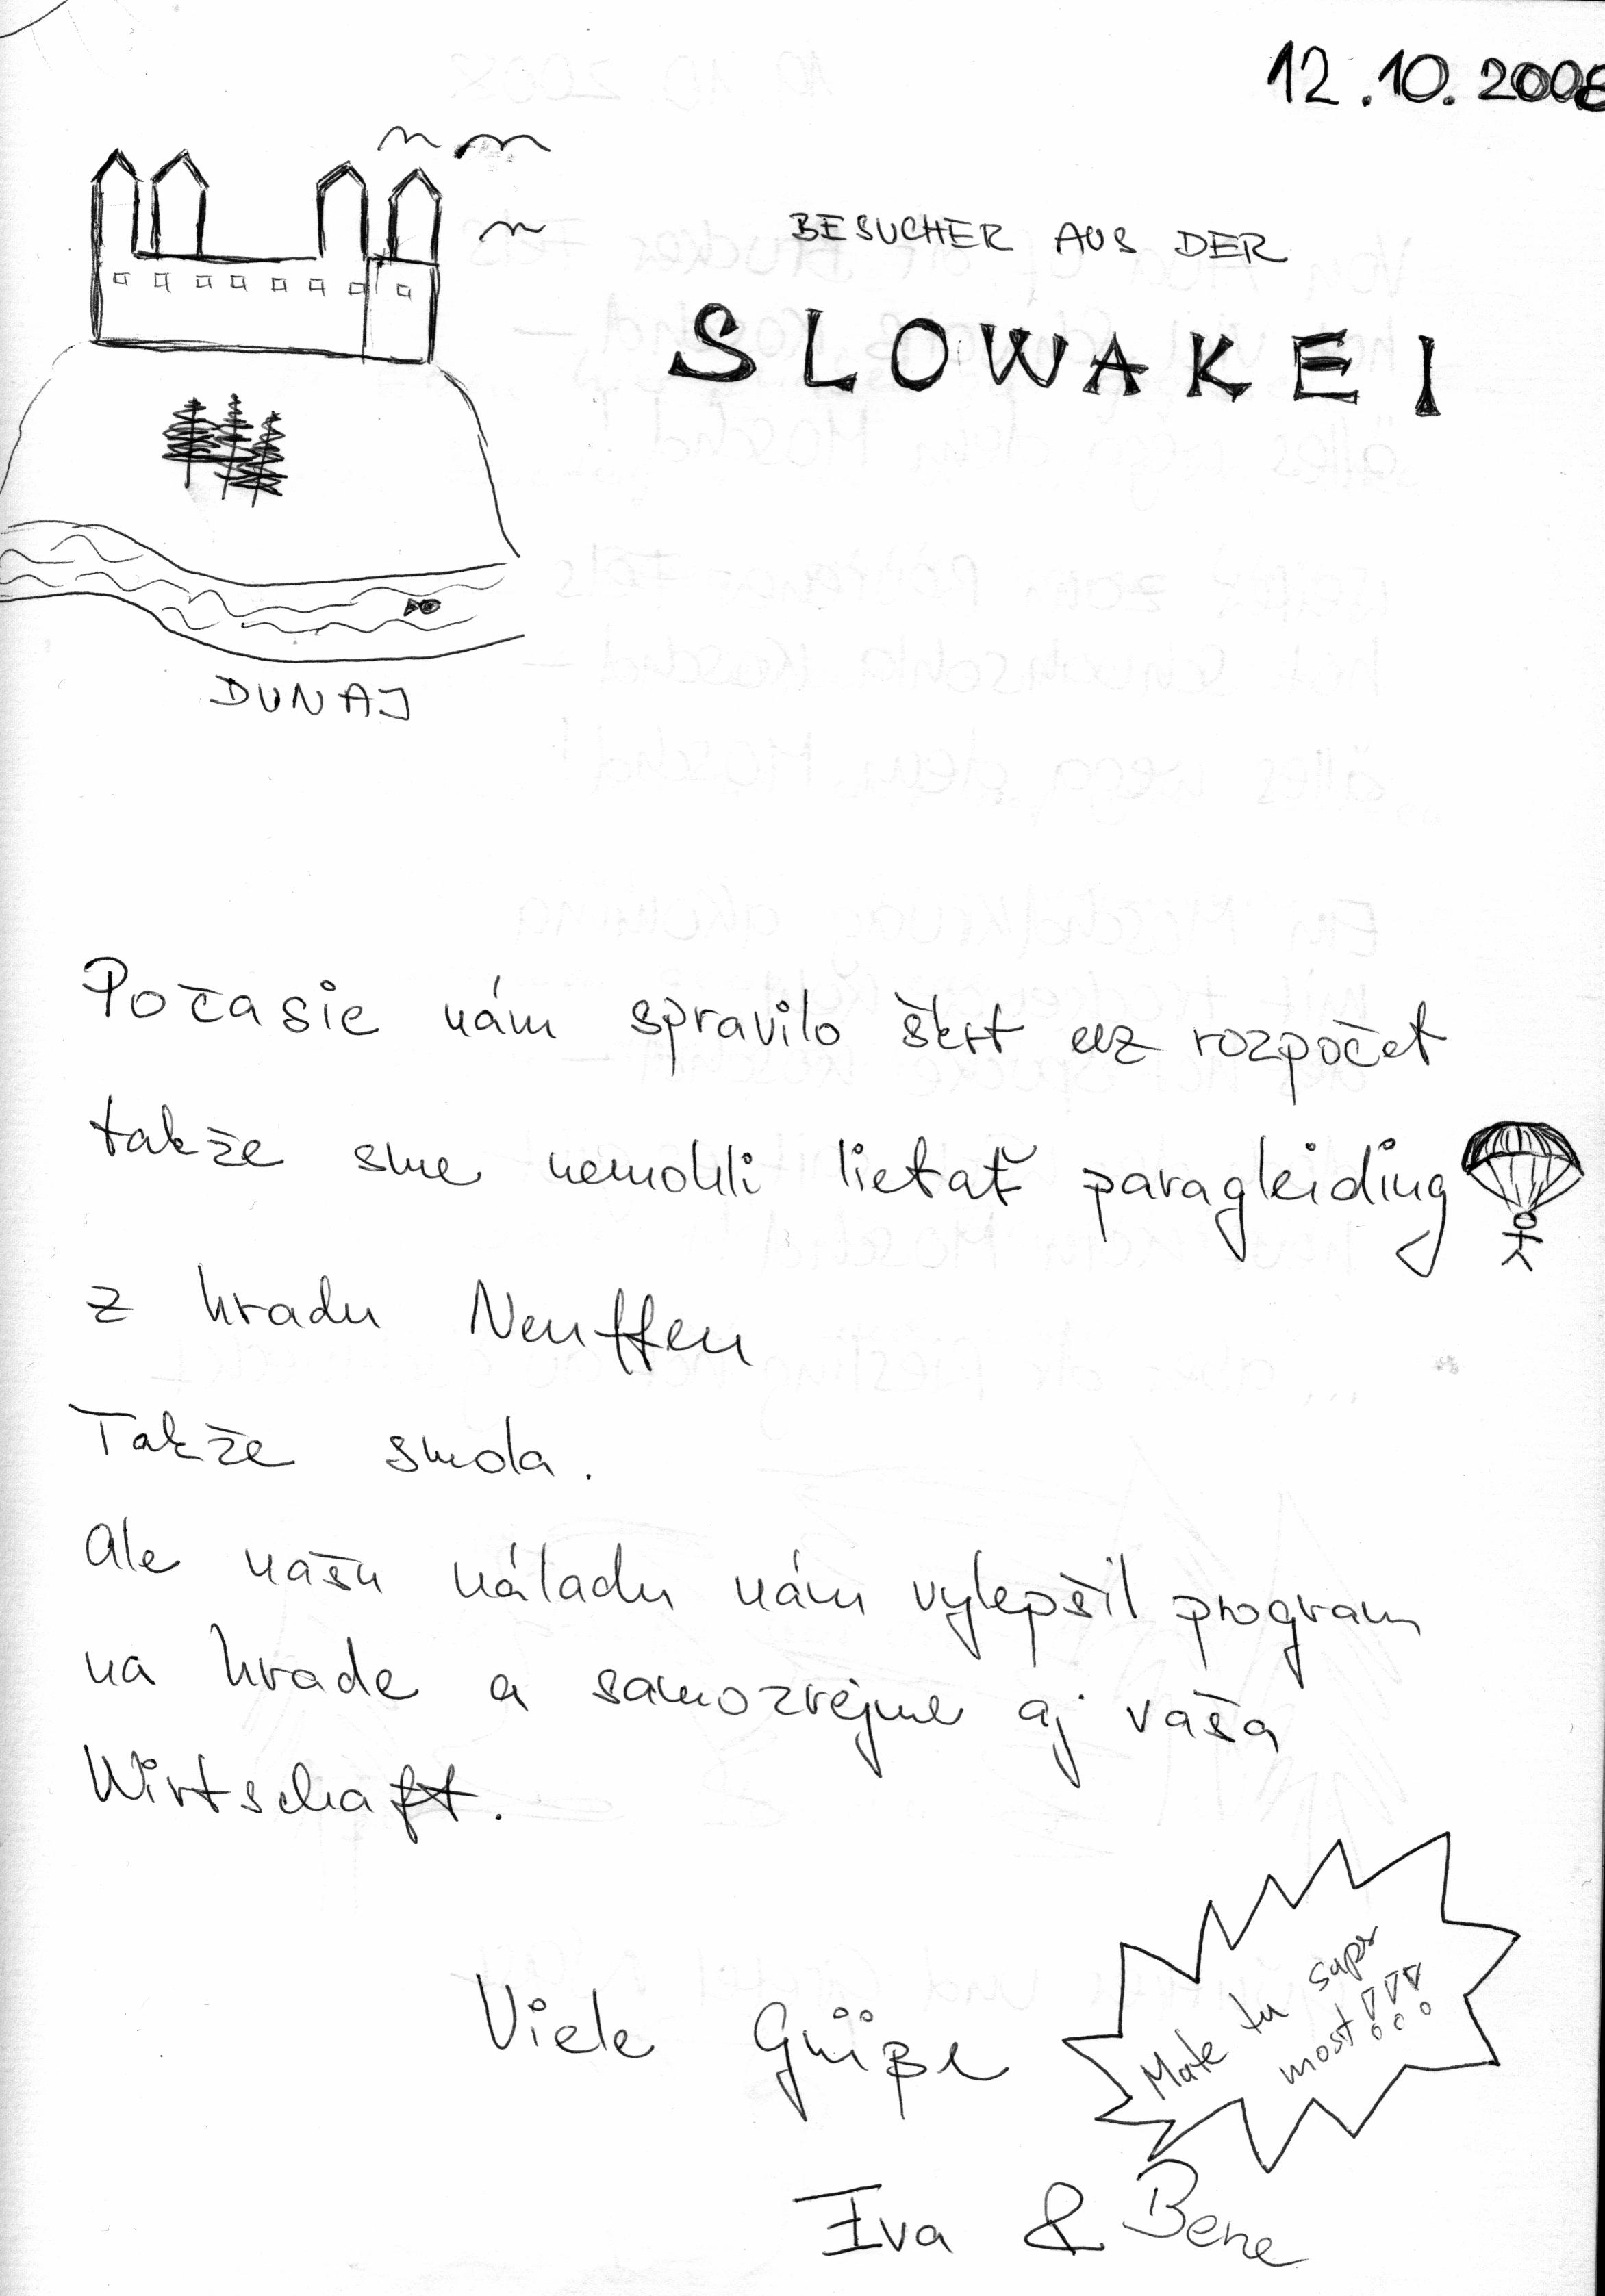 12.10.2008
BESUCHER AUS DER
SLOWAKEI
DUNAJ
Počasie nám spravilo škrt cez rozpočet
takže sme nemohli lietať paragleiding
z hradu Neuffen
Takže smola.
Ale našu náladu nám vylepšil program
na hrade a samozrejme aj vaša
Wirtschaft.
Viele Grüße
Mate tu super
most!!!
Eva & Bene